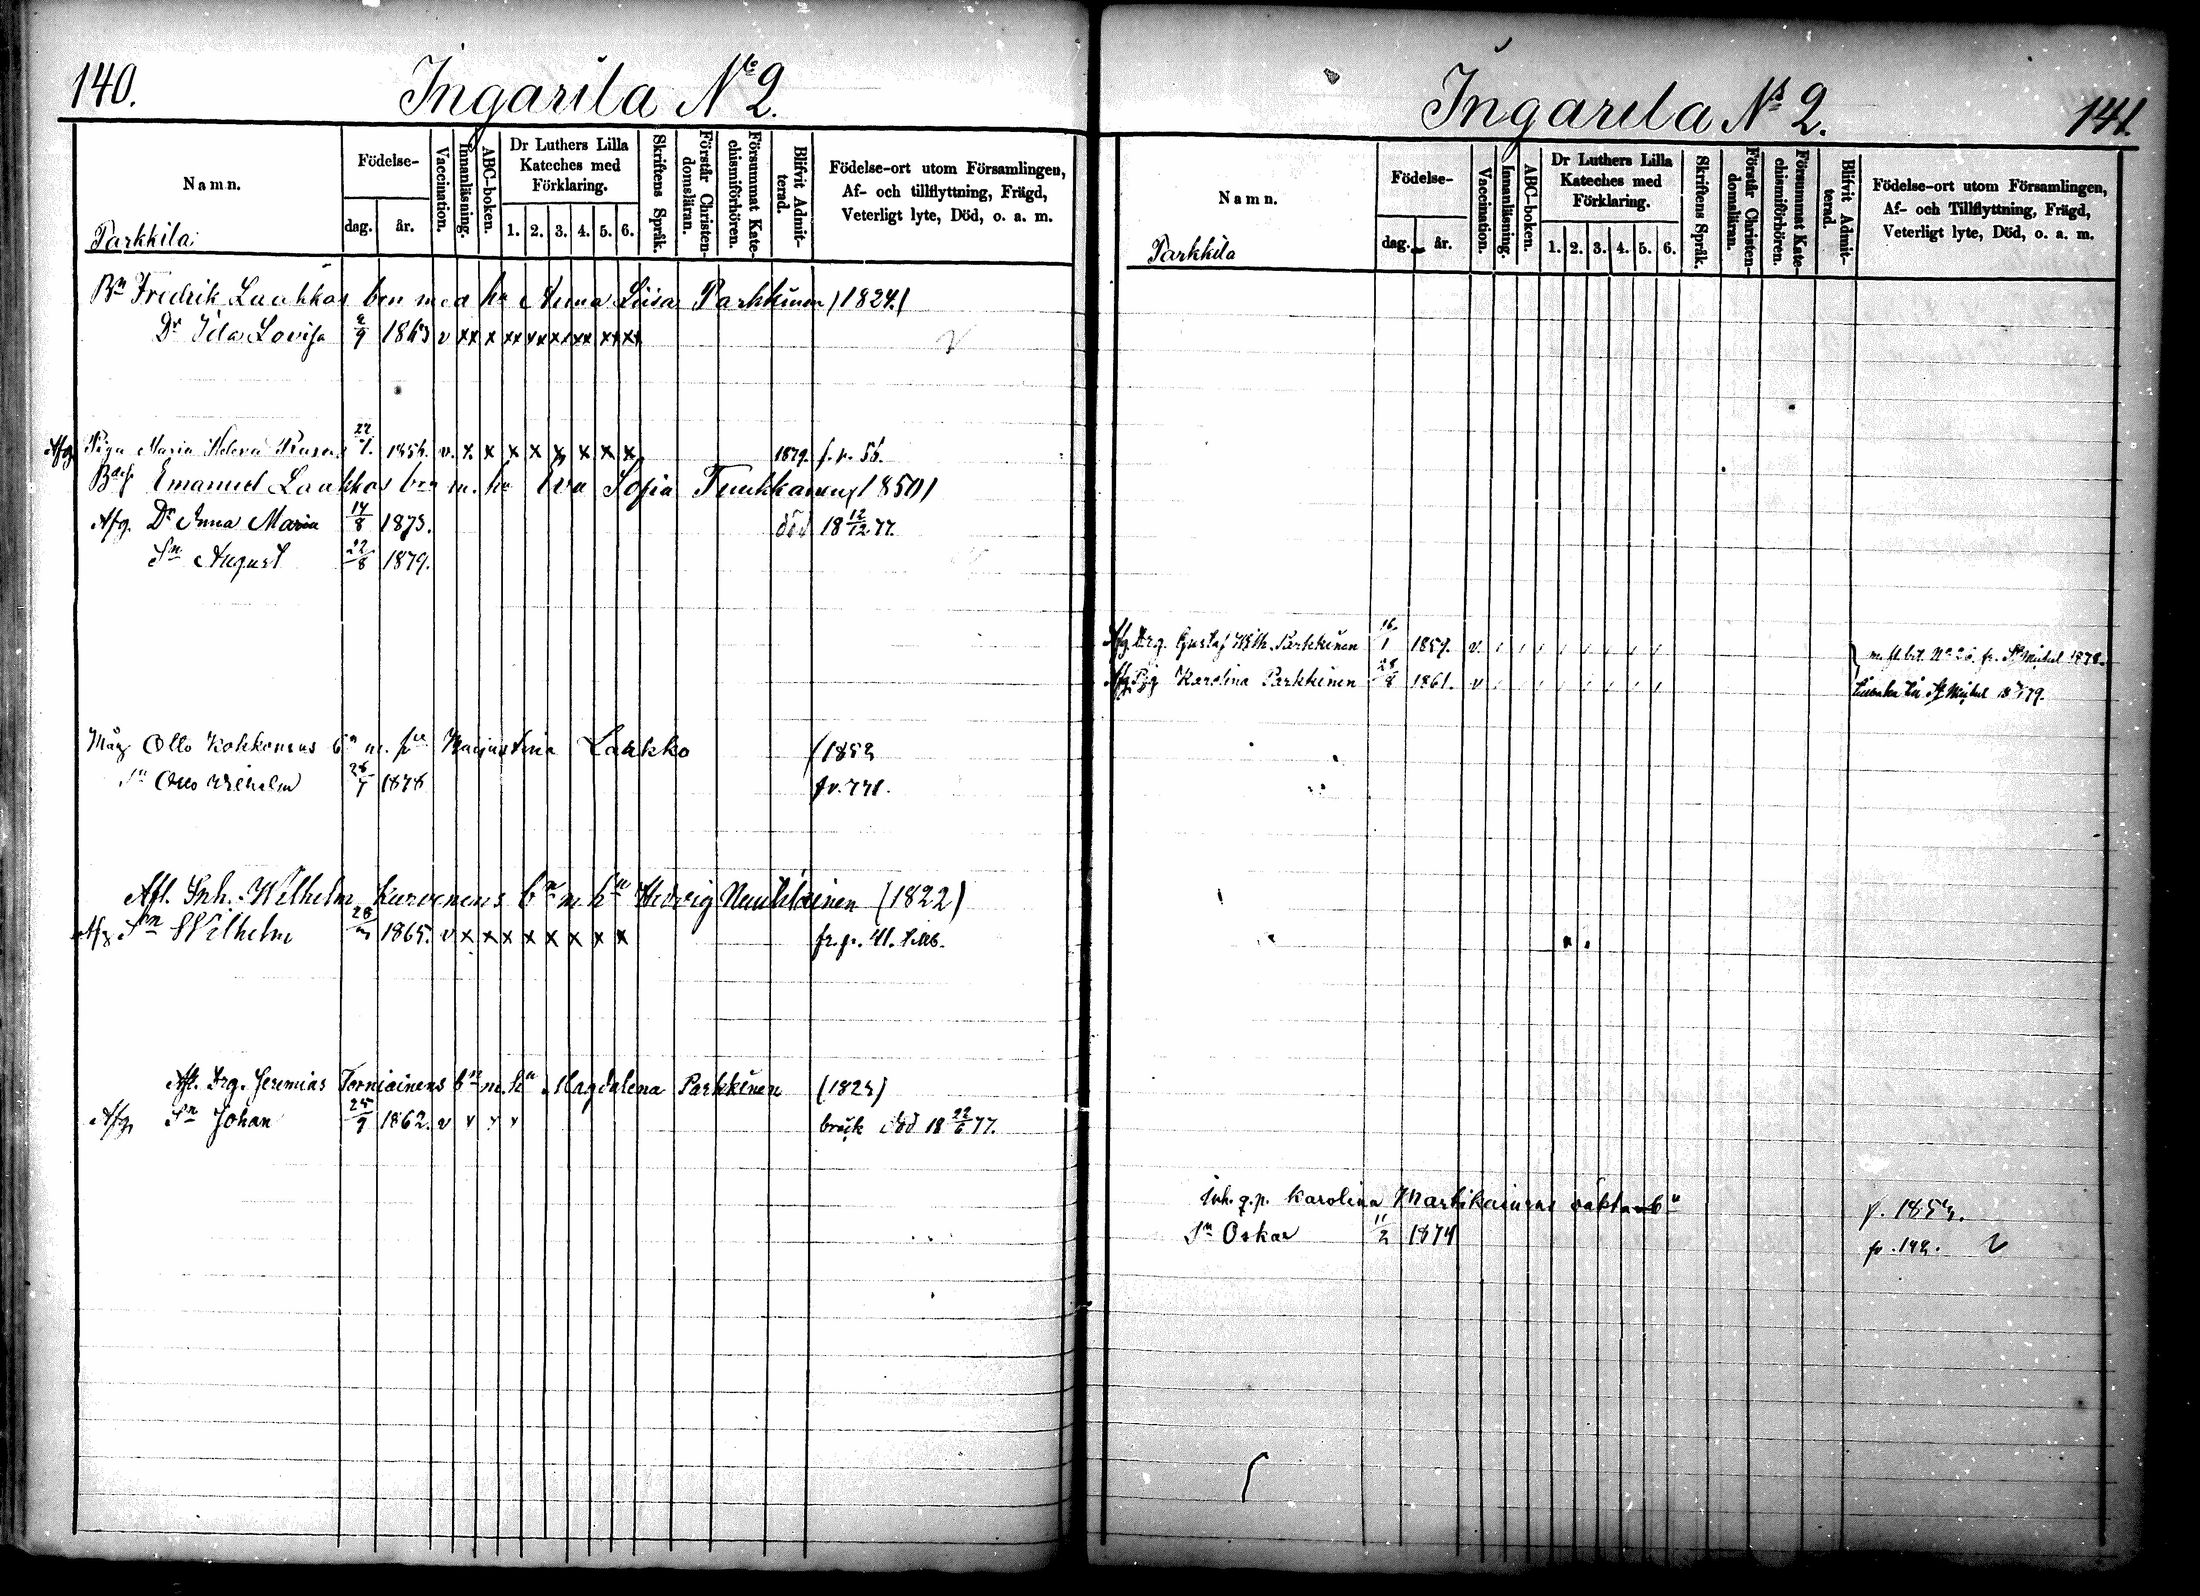 140.
Ingarila No 2.
Namn.
Födelse-
dag.
år.
Vaccination.
Innanläsning.
ABC-boken.
Dr Luthers Lilla Kateches med Förklaring.
1. 2. 3. 4. 5. 6.
Skriftens Språk.
Förstår Christendomsläran.
Försummat Katechismiförhören.
Blifvit Admitterad.
Födelse-ort utom Församlingen, Af- och tillflyttning, Frägd, Veterligt lyte, Död, o. a. m.
Parkkila
Bn Fredrik Laukkas brn med hu Anna Liisa Parkkinen (1824)
Dr Ida Lovisa 2/9 1863 v xx x xx xx xx xx xx xx
Afg. Pigan Maria Helena 22/7. 1856. v. x x x x x x x x 1879. f. p. 56.
Emanuel Laukkas brn m. hu Eva Sofia Tuukkanen (1850)
Afg. Dr Anna Maria 14/8 1873. död 18 12/12 77.
Sn August 22/8 1879.
Måg Otto Kokkonens bn m. hu Laukko (1852
Sn Otto Wilhelm 26/7 1878 fr. 778.
Afl. Inh. Wilhelm Kurvonens bn m. hu Hedvig Nuutilainen (1822)
Afg Sn Wilhelm 28 1865. v x x x x x x x x
Afl. Drg. Jeremias Torniainens bn m. hu Magdalena Parkkinen (1823)
Afg. Sn Johan 25/9 1862. v v v v bräck död 18 22/6 77.
Ingarila No 2.
141.
Namn.
Födelse-
dag.
år.
Vaccination.
Innanläsning.
ABC-boken.
Dr Luthers Lilla Kateches med Förklaring.
1. 2. 3. 4. 5. 6.
Skriftens Språk.
Förstår Christendomsläran.
Försummat Katechismiförhören.
Blifvit Admitterad.
Födelse-ort utom Församlingen, Af- och Tillflyttning, Frägd, Veterligt lyte, Död, o. a. m.
Parkkila
Afg. Drg. Gustaf Wilh. Parkkinen 16/1 1857. v. m. fl. bet. No 26. fr. St Michel 1878.
Afg. Pig Karolina Parkkinen 28/8 1861. v tillbaka till St Michel 1879.
Inh. q.p. Karolina Martikainens oäkta bn f. 1853.
Sn Oskar 11/2 1874 fr. 142. v